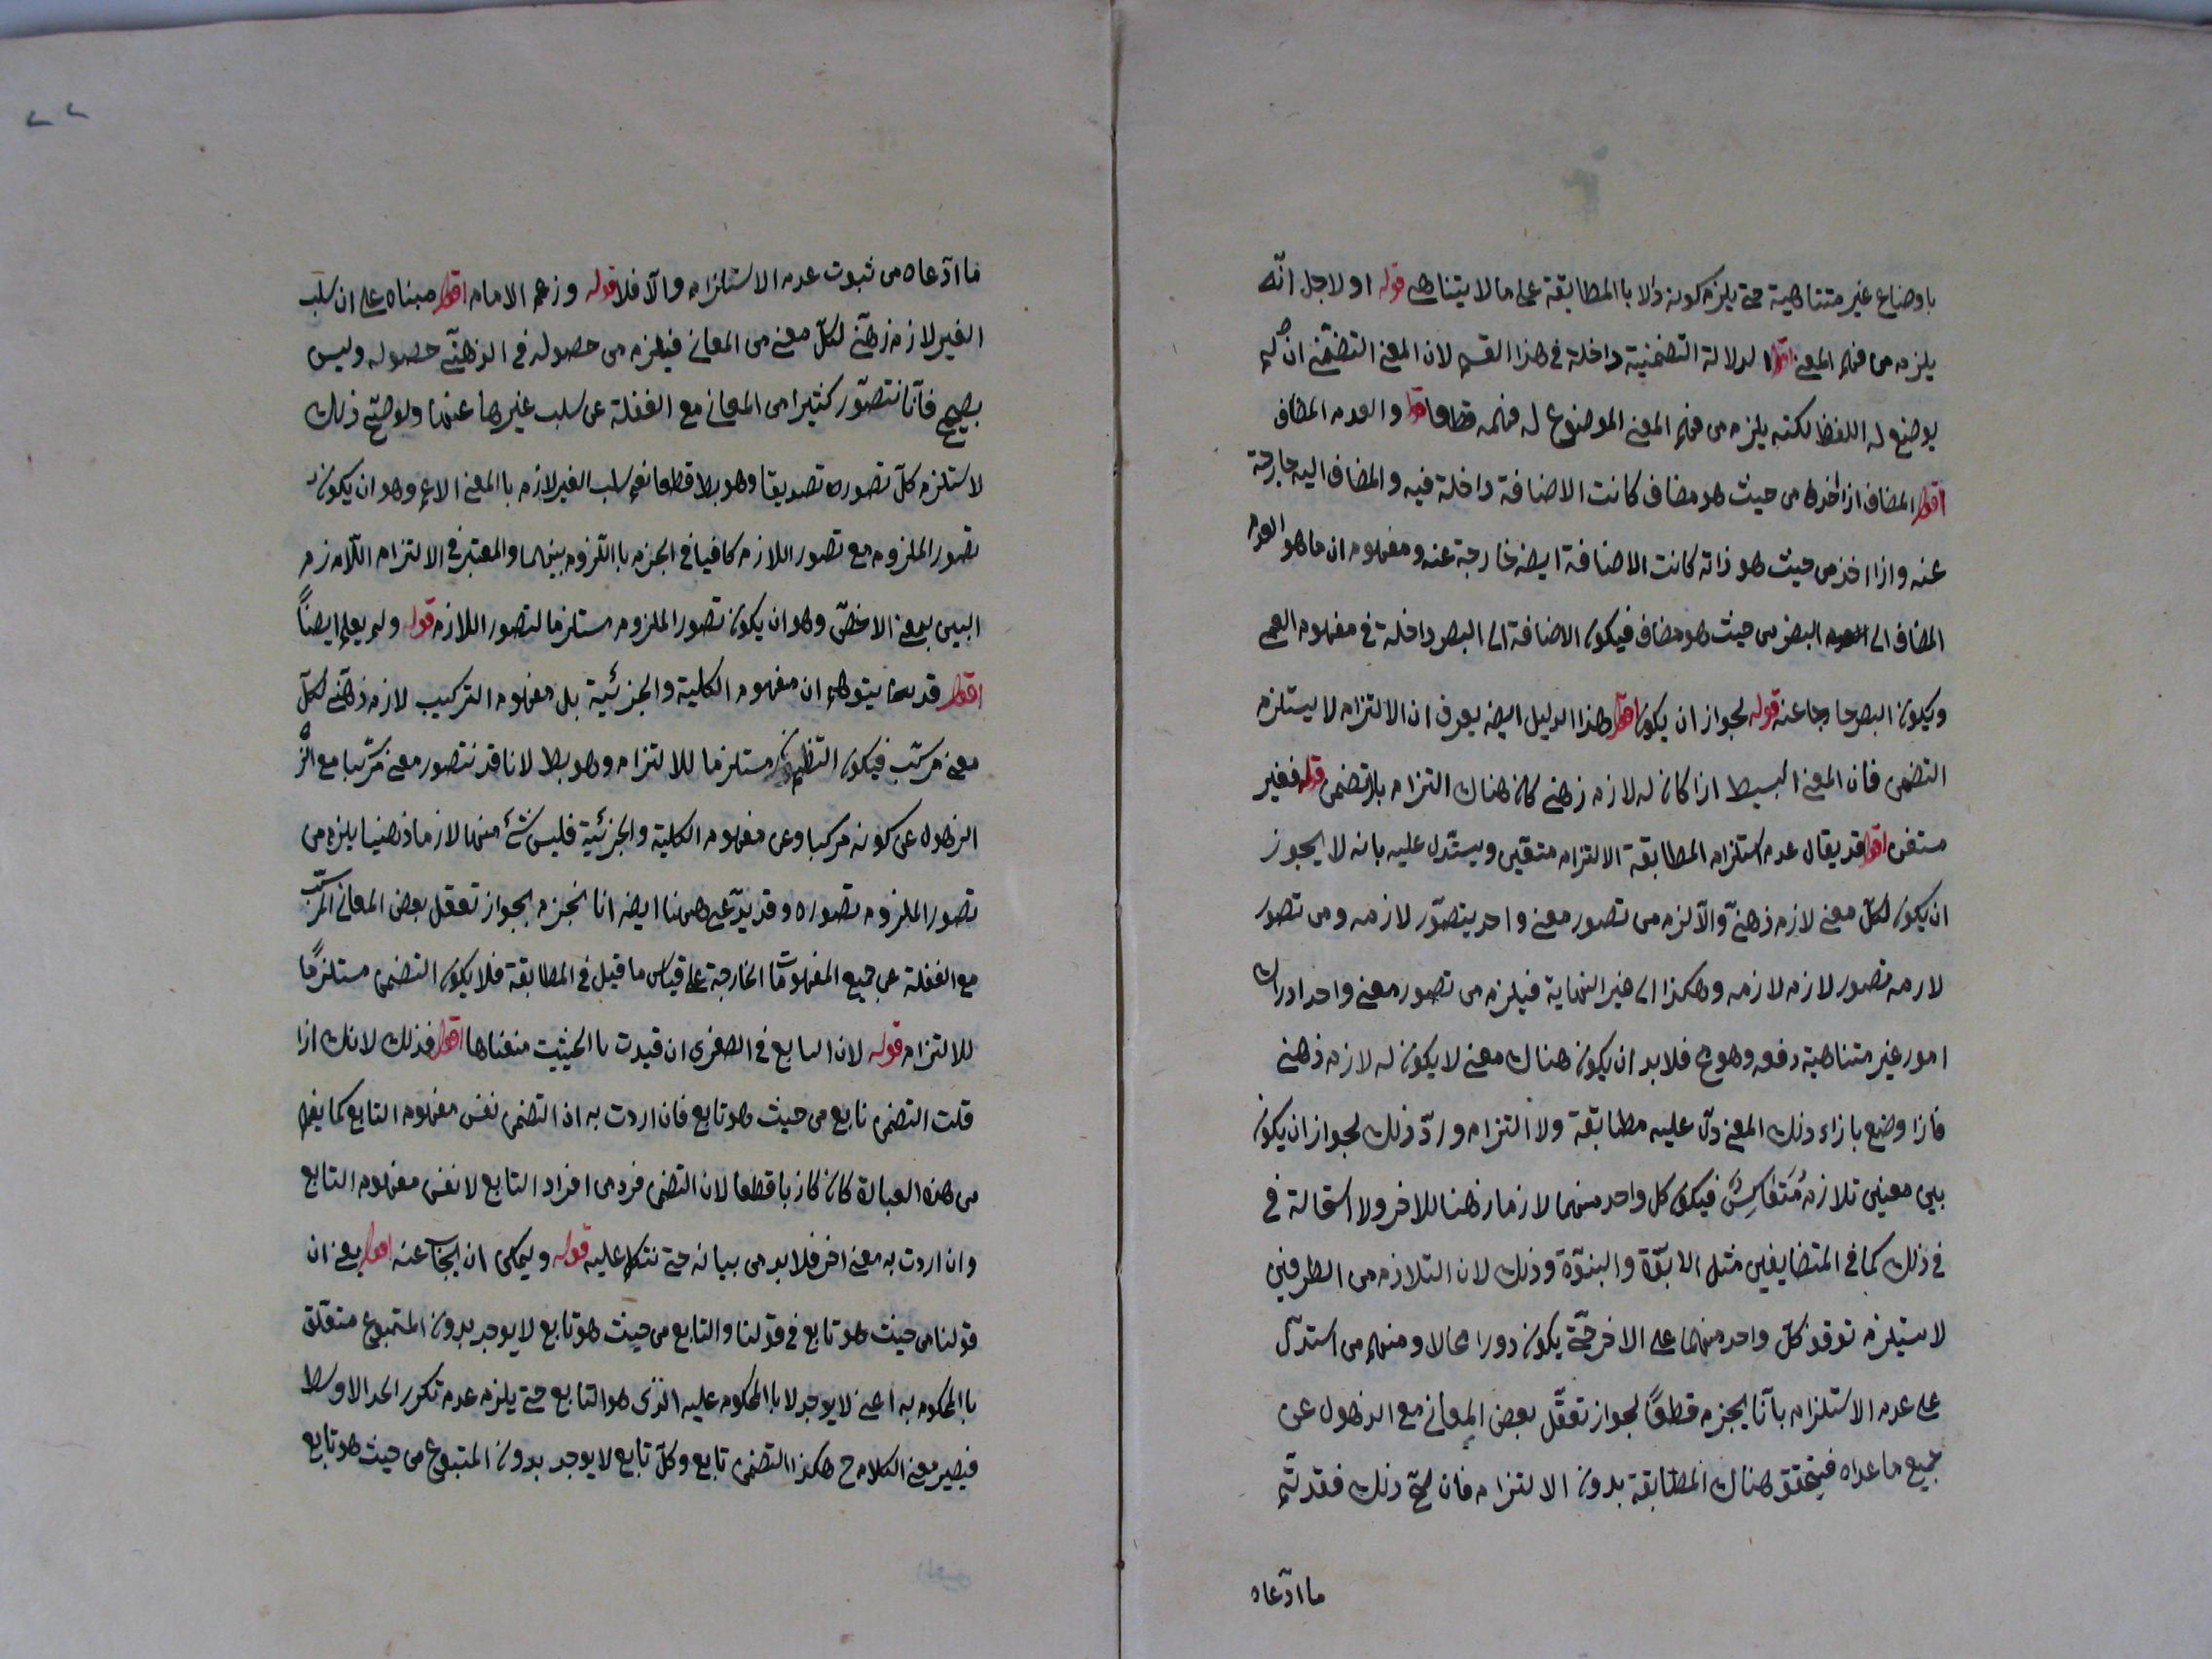 باوضاع غير متناهية حتى يلزم كونه دالا باالمطابقة على ما لا يتناهى قوله او لاجل انّه
يلزم من فهم المعنى اقول الدلالة التضمنية داخلة في هذا القسم لان المعنى التضمّنى ان لم
يوضع له اللفظ لكنه يلزم من فهم المعنى الموضوع له فهمه قطعا قوله والعدم المضاف
اقول المضاف اذا اخذ من حيث هو مضاف كانت الاضافة داخلة فيه والمضاف اليه خارجة
عنه واذا اخذ من حيث هو ذاته كانت الاضافة ايضه خارجة عنه ومفهوم ان ما هو العدم
المضاف الى البصر من حيث هو مضاف فيكون الاضافة الى البصر داخلة في مفهوم العمى
ويكون البصر خارجا عنه قوله لجواز ان يكون اقول هذا الدليل ايضه يعرف ان الالتزام لا يستلزم
التضمن فان المعنى البسيط اذا كان له لازم ذهنى كان هناك التزام بلا تضمن قوله فغير
متيقن اقول قد يقال عدم استلزام المطابقة الالتزام متيقن ويستدل عليه بانه لا يجوز
ان يكون لكلّ معنى لازم ذهنىّ والّا لزم من تصور معنى واحد يتصوّر لازمه ومن تصور
لازمه تصور لازم لازمه وهكذا الى غير النهاية فيلزم من تصور معنى واحد ادراك
امور غير متناهية دفعه وهو مح فلا بد ان يكون هناك معنى لا يكون له لازم ذهنى
فاذا وضع بازاء ذلك المعنى دلّ عليه مطابقة ولا التزام وردّ ذلك لجواز ان يكون
بين معنيين تلازم مُتَعَاكِسٌ فيكون كل واحد منهما لازما ذهنا للاخر ولا استحالة في
في ذلك كما في المتضايفين مثل الابوّة والبنوّة وذلك لان التلازم من الطرفين
لا يستلزم توقف كلّ واحد منهما على الاخر حتّى يكون دورا محالا ومنهم من استدلّ
على عدم الاستلزام بانّا نجزم قطعًا لجواز تعقّل بعض المعانى مع الذهول عن
جميع ما عداه فيتحقق هناك المطابقة بدون الالتزام فان صحّ ذلك فقد تمّ
ما ادّعاه
٢٢
ما ادّعاه من ثبوت عدم الاستلزام والّا فلا قوله وزعم الامام اقول مبناه على ان سلب
الغير لازم ذهنّى لكلّ معنى من المعانى فيلزم من حصوله في الذهنّى حصوله وليس
بصحيح فانّا نتصوّر كثيرا من المعانى مع الغفلة عن سلب غيرها عنها ولو صحّ ذلك
لاستلزم كلّ تصوره تصديقا وهو بط قطعا نعم سلب الغير لازم باالمعنى الاعم وهو ان يكون
تصور الملزوم مع تصور اللازم كافيا في الجزم بااللزوم بينهما والمعتبر في الالتزام اللازم
البين بمعنى الاخصّ وهو ان يكون تصور الملزوم مستلزما لتصور اللازم قوله ولم يعلم ايضاً
اقول قد يتوهم ان مفهوم الكلية والجزئية بل مفهوم التركيب لازم ذهنّى لكلّ
معنى مركّب فيكون التضمن مستلزما للالتزام وهو بط لانا قد نتصور معنى مركّبا مع
الذهول عن كونه مركبا وعن مفهوم الكلية والجزئية فليس شئ منها لازما ذهنيا يلزم من
تصور الملزوم تصوره وقد يدّعى ههنا ايضه انا نجزم بجواز تعقل بعض المعانى المركّب
مع الغفلة عن جميع المفهومات الخارجة على قياس ما قيل في المطابقة فلا يكون التضمن مستلزمًا
للالتزام قوله لان التابع في الصغرى ان قيدت باالحيثيت منعناها اقول فذلك لانك اذا
قلت التضمن تابع من حيث هو تابع فان اردت به ان التضمن نفس مفهوم التابع كما يفهم
من هذه العبارة كان كاذبا قطعا لان التضمن فرد من افراد التابع لا نفس مفهوم التابع
وان اردت به معنى اخر فلا بد من بيانه حتى نتكلم عليه قوله ويمكن ان يجاب عنه اقول يعنى ان
قولنا من حيث هو تابع في قولنا والتابع من حيث هو تابع لا يوجد بدون المتبوع متعلّق
باالمحكوم به اعنى لا يوجد لا باالمحكوم عليه الذى هو التابع حتى يلزم عدم تكرر الحد الاوسط
فيصير معنى الكلام ح هكذا التضمن تابع وكلّ تابع لا يوجد بدون المتبوع من حيث هو تابع